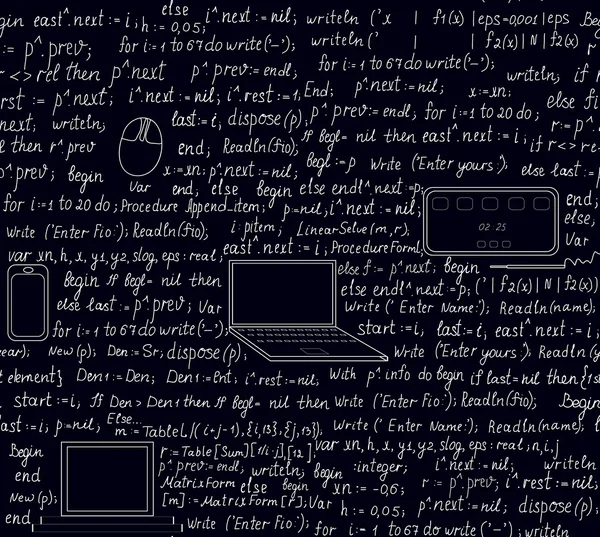 else
egin east^.next := nil; h := 0,05; r := p^.next := nil; writeln ('x | f1(x) | eps=0,001 | eps Begin
:= p^.prev; for i:=1 to 67 do write('–'); writeln (' | | f2(x) | N | f2(x)
r <> rel then p^.next p^.prev := endl; for i:=1 to 67 do write('–'); writeln; if
rst := p^.next; i^.next := nil; i^.rest := 1, End; p^.next := nil; x:=xn; else fi
next, writeln; last := i, dispose(p), p^.prev := endl; for i:=1 to 20 do; r := p^.
l then r^.prev end; Readln(fio); If begl = nil then east^.next := i; if r <> re
p^.prev; begin x:=xn; p^.next := nil; begl := p Write ('Enter yours:'); else last :=
Var end, else begin else endl^.next := p; end;
for i:=1 to 20 do; Procedure Append_item; p:=nil, i^.next := nil; else,
Write ('Enter Fio:'); Readln(fio); i: pitem; LinearSolve(m, r), 02:25 Var
var xn, h, x, y1, y2, slog, eps: real; east^.next := i; Procedure Form1,
begin If begl = nil then else f := p^.next; begin
else last := p^.prev; Var else endl^.next := p; (' | f2(x) | N | f2(x)
for i:=1 to 67 do write('–'); Write ('Enter Name:'); Readln(name);
start := i, last := i, east^.next := i
ear); New(p); Den := Sr; dispose(p); Write ('Enter yours:'); Readln (y
t element} Den1 := Den; Den := Ent; i^.rest := nil; With p^.info do begin if last = nil then {1s
start := i; If Den > Den1 then If begl = nil then Write ('Enter Fio:'); Readln(fio); Begin
last := i, p := nil, Else... Write ('Enter Name:'); Readln(name);
m := TableL/(i+j-1), {i,13}, {j,13}), east^.next := i;
Begin r := Table[Sum][1/i·j], [12] Var xn, h, x, y1, y2, slog, eps: real; n, i, j
end p^.prev := endl; writeln; begin : integer; i^.next := nil; writeln
New(p); MatrixForm else begin xn := -0,6; p^.next := nil, r := p^.next; i^.rest := nil,
[m] := MatrixForm [r], Var h := 0,05; p^.next := nil; dispose(p),
end Write ('Enter Fio:'); for i:=1 to 67 do write('–'); writeln